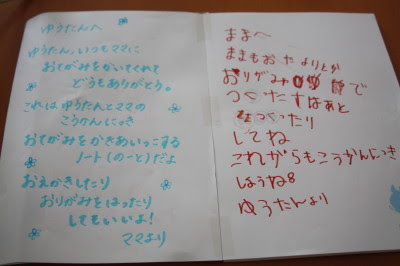 ゆうたんへ
ゆうたん、いつもママに
おてがみをかいてくれて
どうもありがとう。
これはゆうたんとママの
こうかんにっき
おてがみをかきあいっこする
ノート(のーと)だよ
おえかきしたり
おりがみをはったり
してもいいよ!
ママより
ままへ
ままもおやよりとか
おりがみ で
つくたすはあと
つくったり
してね
これがらもこうかんにっき
しようね8
ゆうたんより